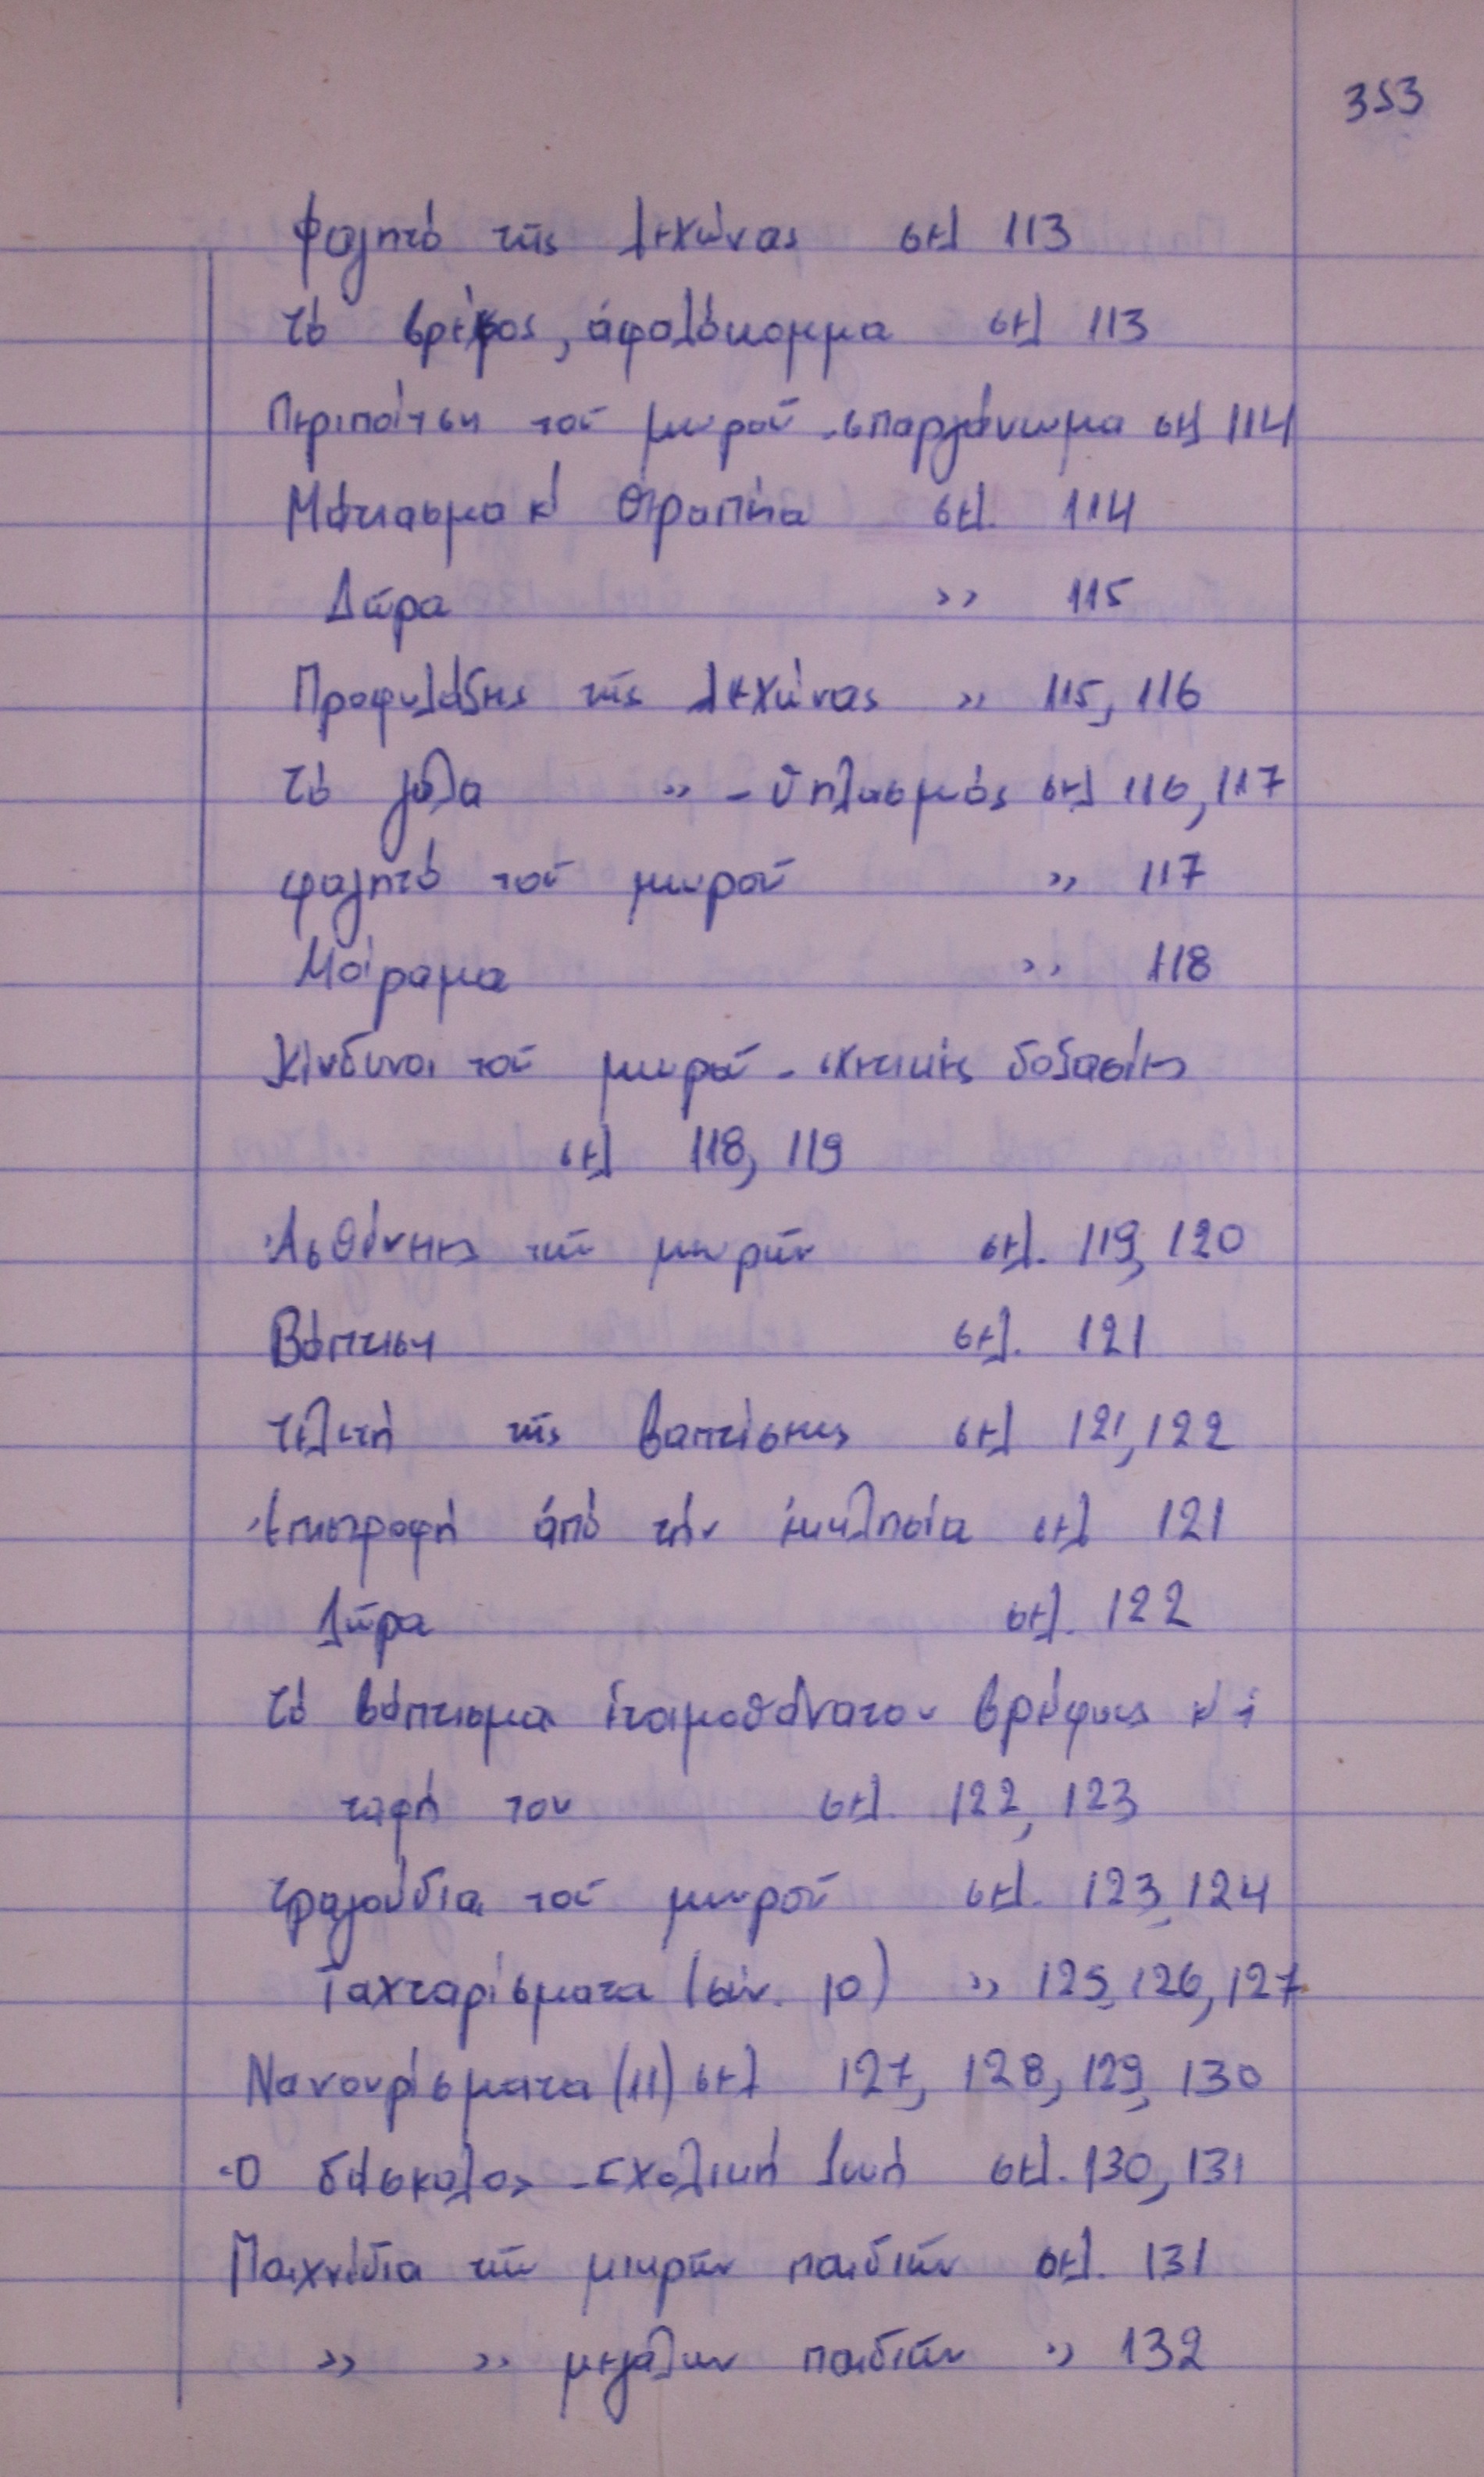 353
φαγητό τῆς λεχώνας σελ 113
τό βρέφος, ἀφαλόκομμα σελ 113
Περιποίηση τοῦ μικροῦ - σπαργάνωμα σελ 114
Μάτιασμα κ' θεραπεία σελ. 114
Δῶρα » 115
Προφυλάξεις τῆς λεχώνας » 115, 116
τό γάλα » - θηλασμός σελ 116, 117
φαγητό τοῦ μικροῦ » 117
Μοίραμα » 118
Κίνδυνοι τοῦ μικροῦ - σχετικές δοξασίες
σελ 118, 119
Ἀσθένειες τῶν μικρῶν σελ. 119, 120
Βάπτιση σελ. 121
τελετή τῆς βαπτίσεως σελ 121, 122
Ἐπιστροφή ἀπό τήν ἐκκλησία σελ 121
Δῶρα σελ. 122
τό βάπτισμα ἑτοιμοθάνατου βρέφους κ' ἡ
ταφή του σελ. 122, 123
τραγούδια τοῦ μικροῦ σελ. 123, 124
Ταχταρίσματα (σύν. 10) » 125, 126, 127
Νανουρίσματα (11) σελ 127, 128, 129, 130
Ὁ δάσκαλος - Σχολική ζωή σελ. 130, 131
Παιχνίδια τῶν μικρῶν παιδιῶν σελ. 131
» » μεγάλων παιδιῶν » 132